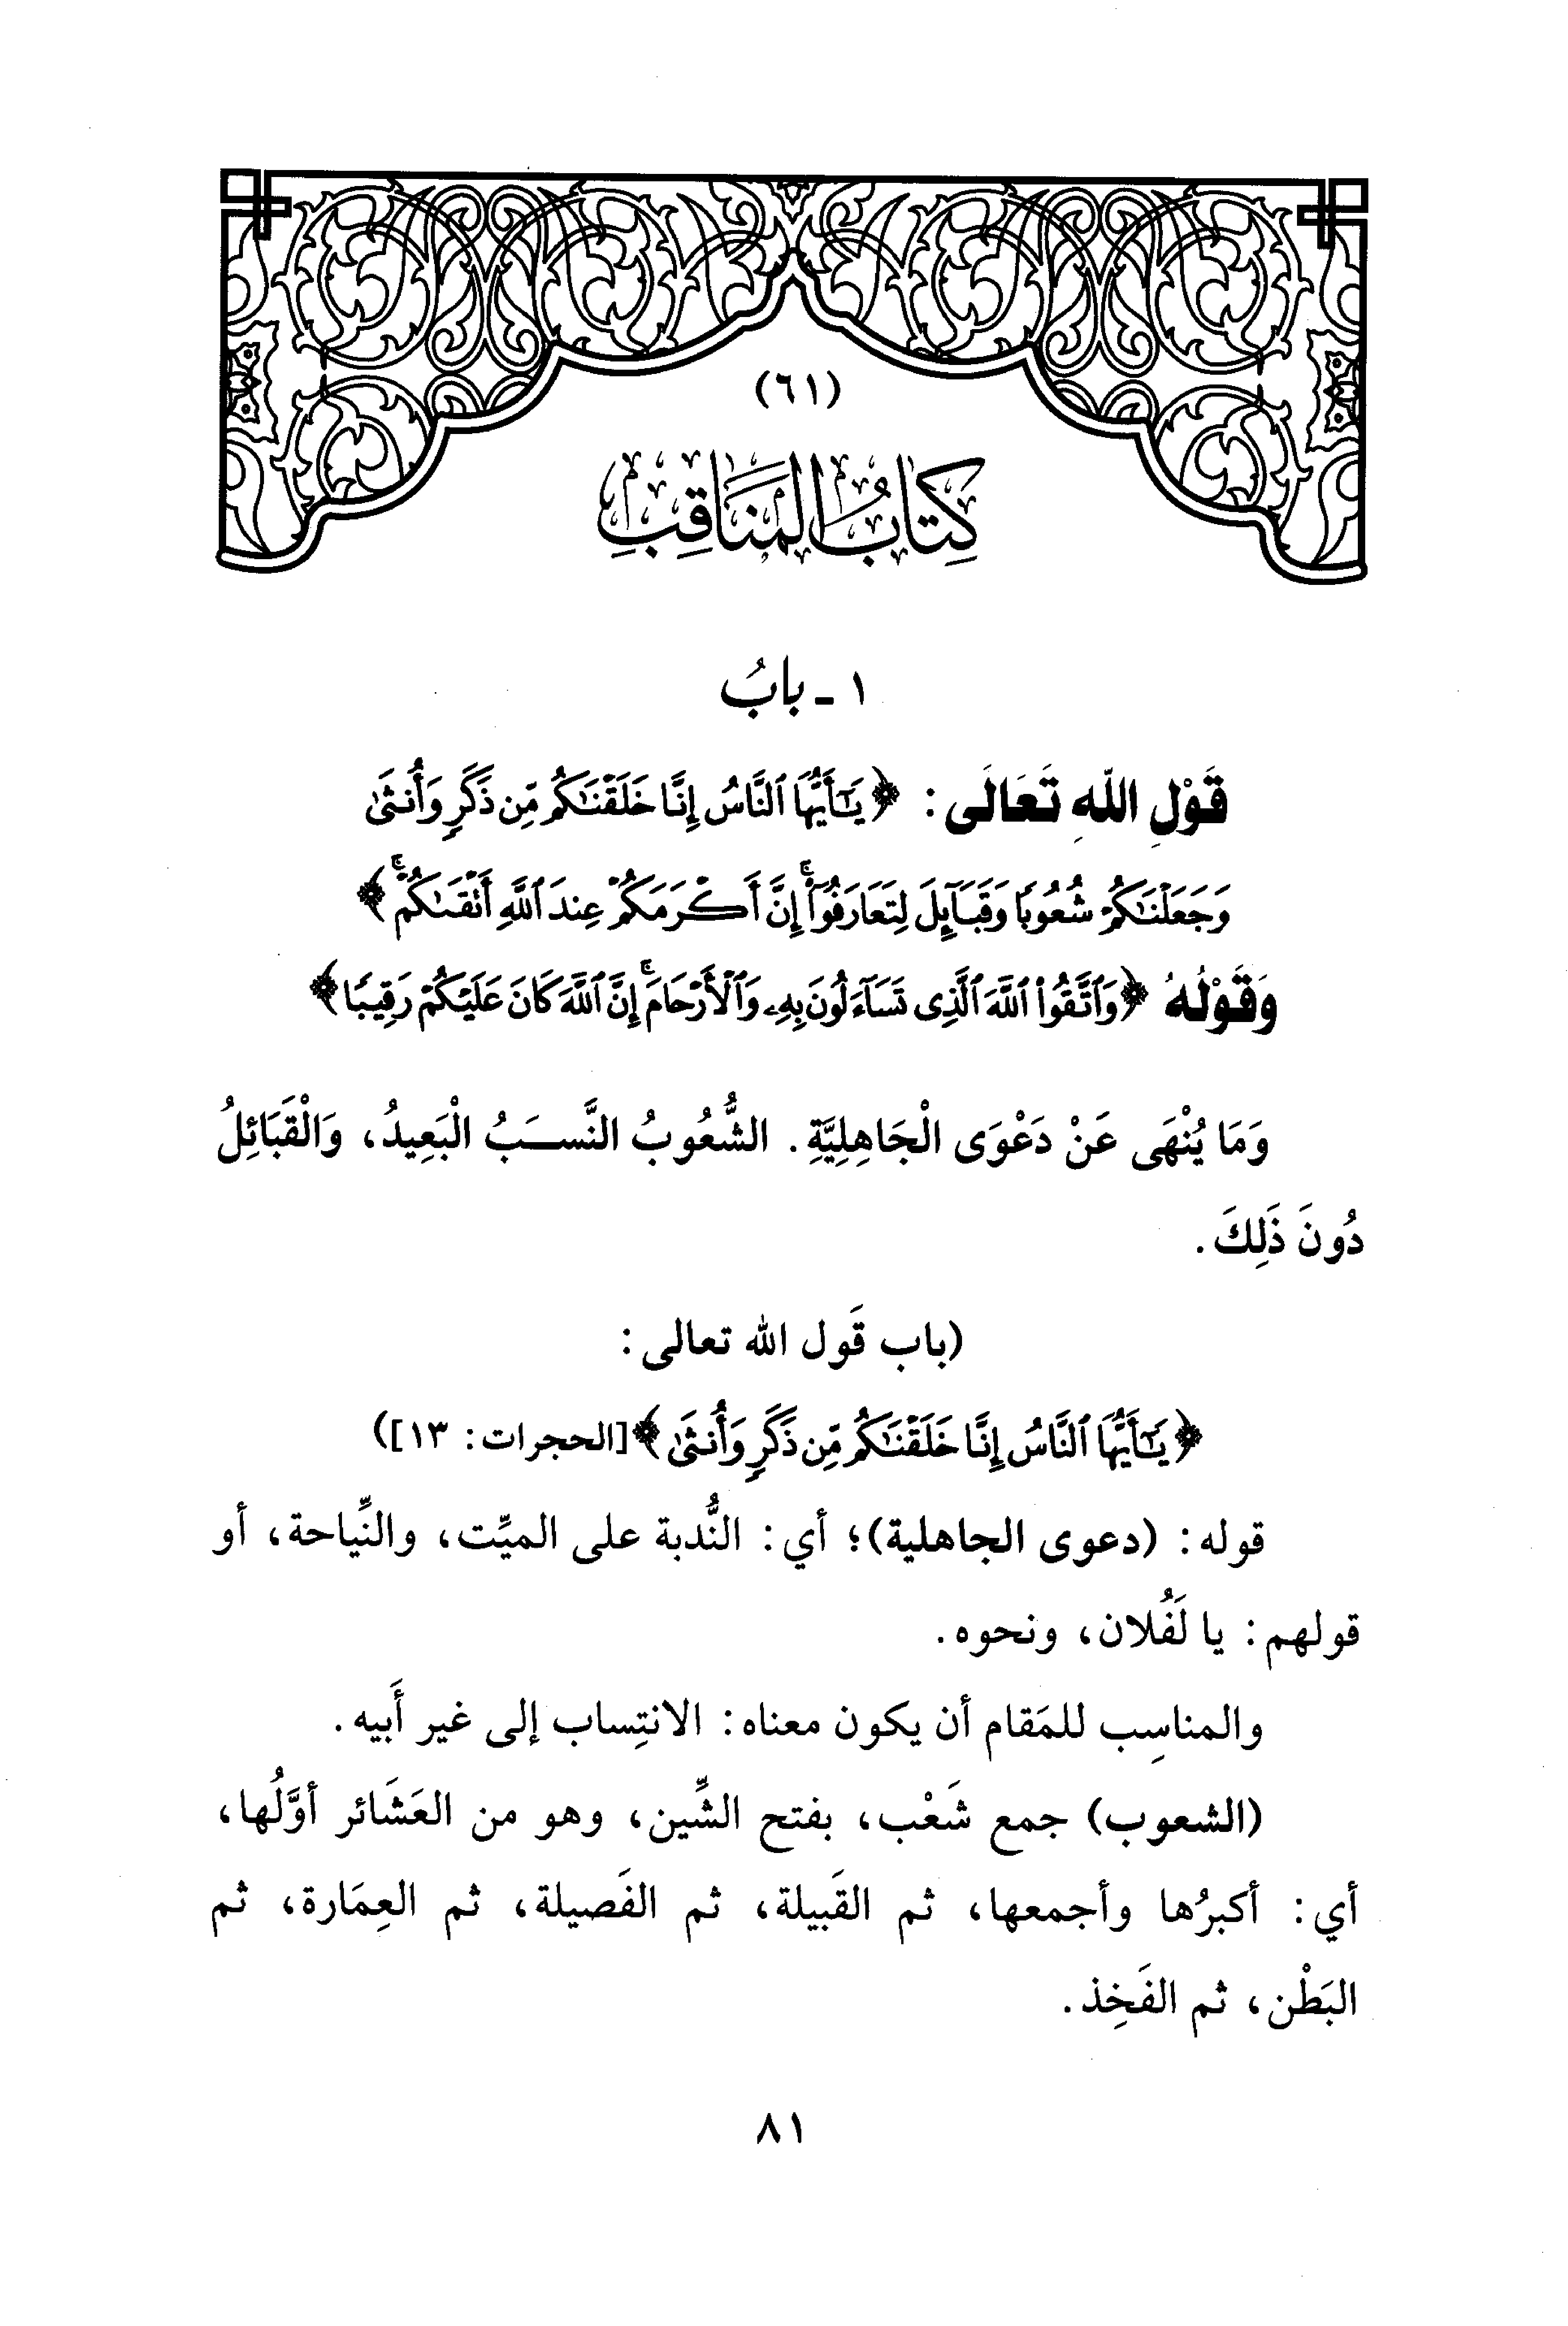 (٦١)
كِتَابُ المَنَاقِبِ
١ ـ بابُ
قَوْلِ اللهِ تَعَالَى: ﴿يَٰٓأَيُّهَا ٱلنَّاسُ إِنَّا خَلَقْنَٰكُم مِّن ذَكَرٍ وَأُنثَىٰ
وَجَعَلْنَٰكُمْ شُعُوبًا وَقَبَآئِلَ لِتَعَارَفُوٓا۟ ۚ إِنَّ أَكْرَمَكُمْ عِندَ ٱللَّهِ أَتْقَىٰكُمْ ۚ﴾
وَقَوْلُهُ ﴿وَٱتَّقُوا۟ ٱللَّهَ ٱلَّذِى تَسَآءَلُونَ بِهِۦ وَٱلْأَرْحَامَ ۚ إِنَّ ٱللَّهَ كَانَ عَلَيْكُمْ رَقِيبًا﴾
وَمَا يُنْهَى عَنْ دَعْوَى الْجَاهِلِيَّةِ. الشُّعُوبُ النَّسَبُ الْبَعِيدُ، وَالْقَبَائِلُ
دُونَ ذَلِكَ.
(باب قَول الله تعالى:
﴿يَٰٓأَيُّهَا ٱلنَّاسُ إِنَّا خَلَقْنَٰكُم مِّن ذَكَرٍ وَأُنثَىٰ﴾[الحجرات: ١٣])
قوله: (دعوى الجاهلية)؛ أي: النُّدبة على الميِّت، والنِّياحة، أو
قولهم: يا لَفُلان، ونحوه.
والمناسِب للمَقام أن يكون معناه: الانتِساب إلى غير أَبيه.
(الشعوب) جمع شَعْب، بفتح الشِّين، وهو من العَشَائر أوَّلُها،
أي: أكبرُها وأجمعها، ثم القَبيلة، ثم الفَصيلة، ثم العِمَارة، ثم
البَطْن، ثم الفَخِذ.
٨١